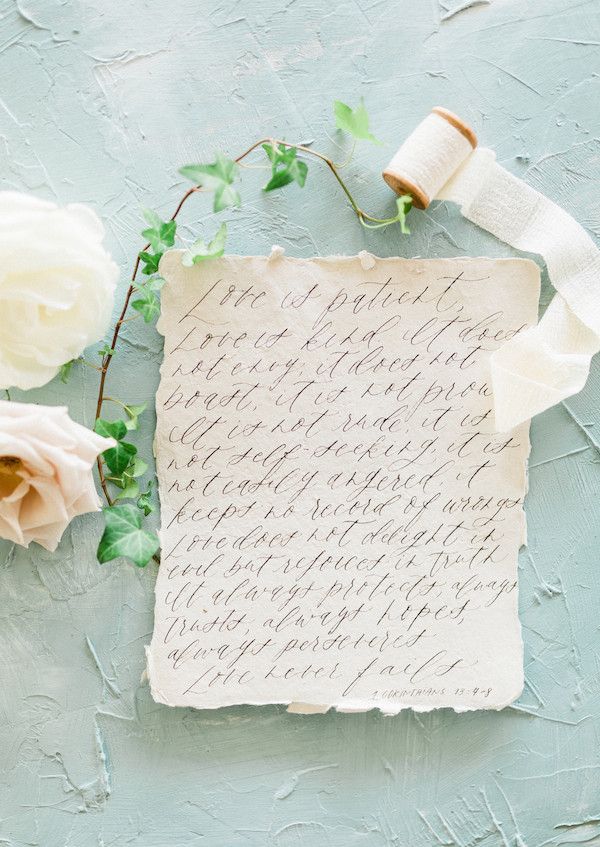 Love is patient,
Love is kind. It does
not envy, it does not
boast, it is not prou
It is not rude, it is
not self-seeking, it is
not easily angered, it
keeps no record of wrongs
Love does not delight in
evil but rejoices in truth
It always protects, always
trusts, always hopes,
always perseveres
Love never fails
1 CORINTHIANS 13:4-8